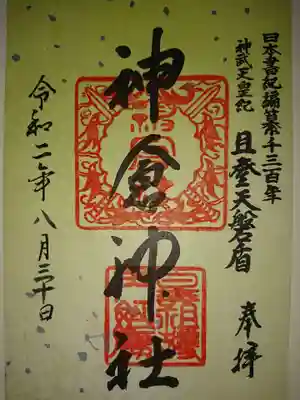 日本書紀編纂奉千三百年
神武天皇紀
且登天磐盾
奉拝
神倉神社
令和二年八月三十日